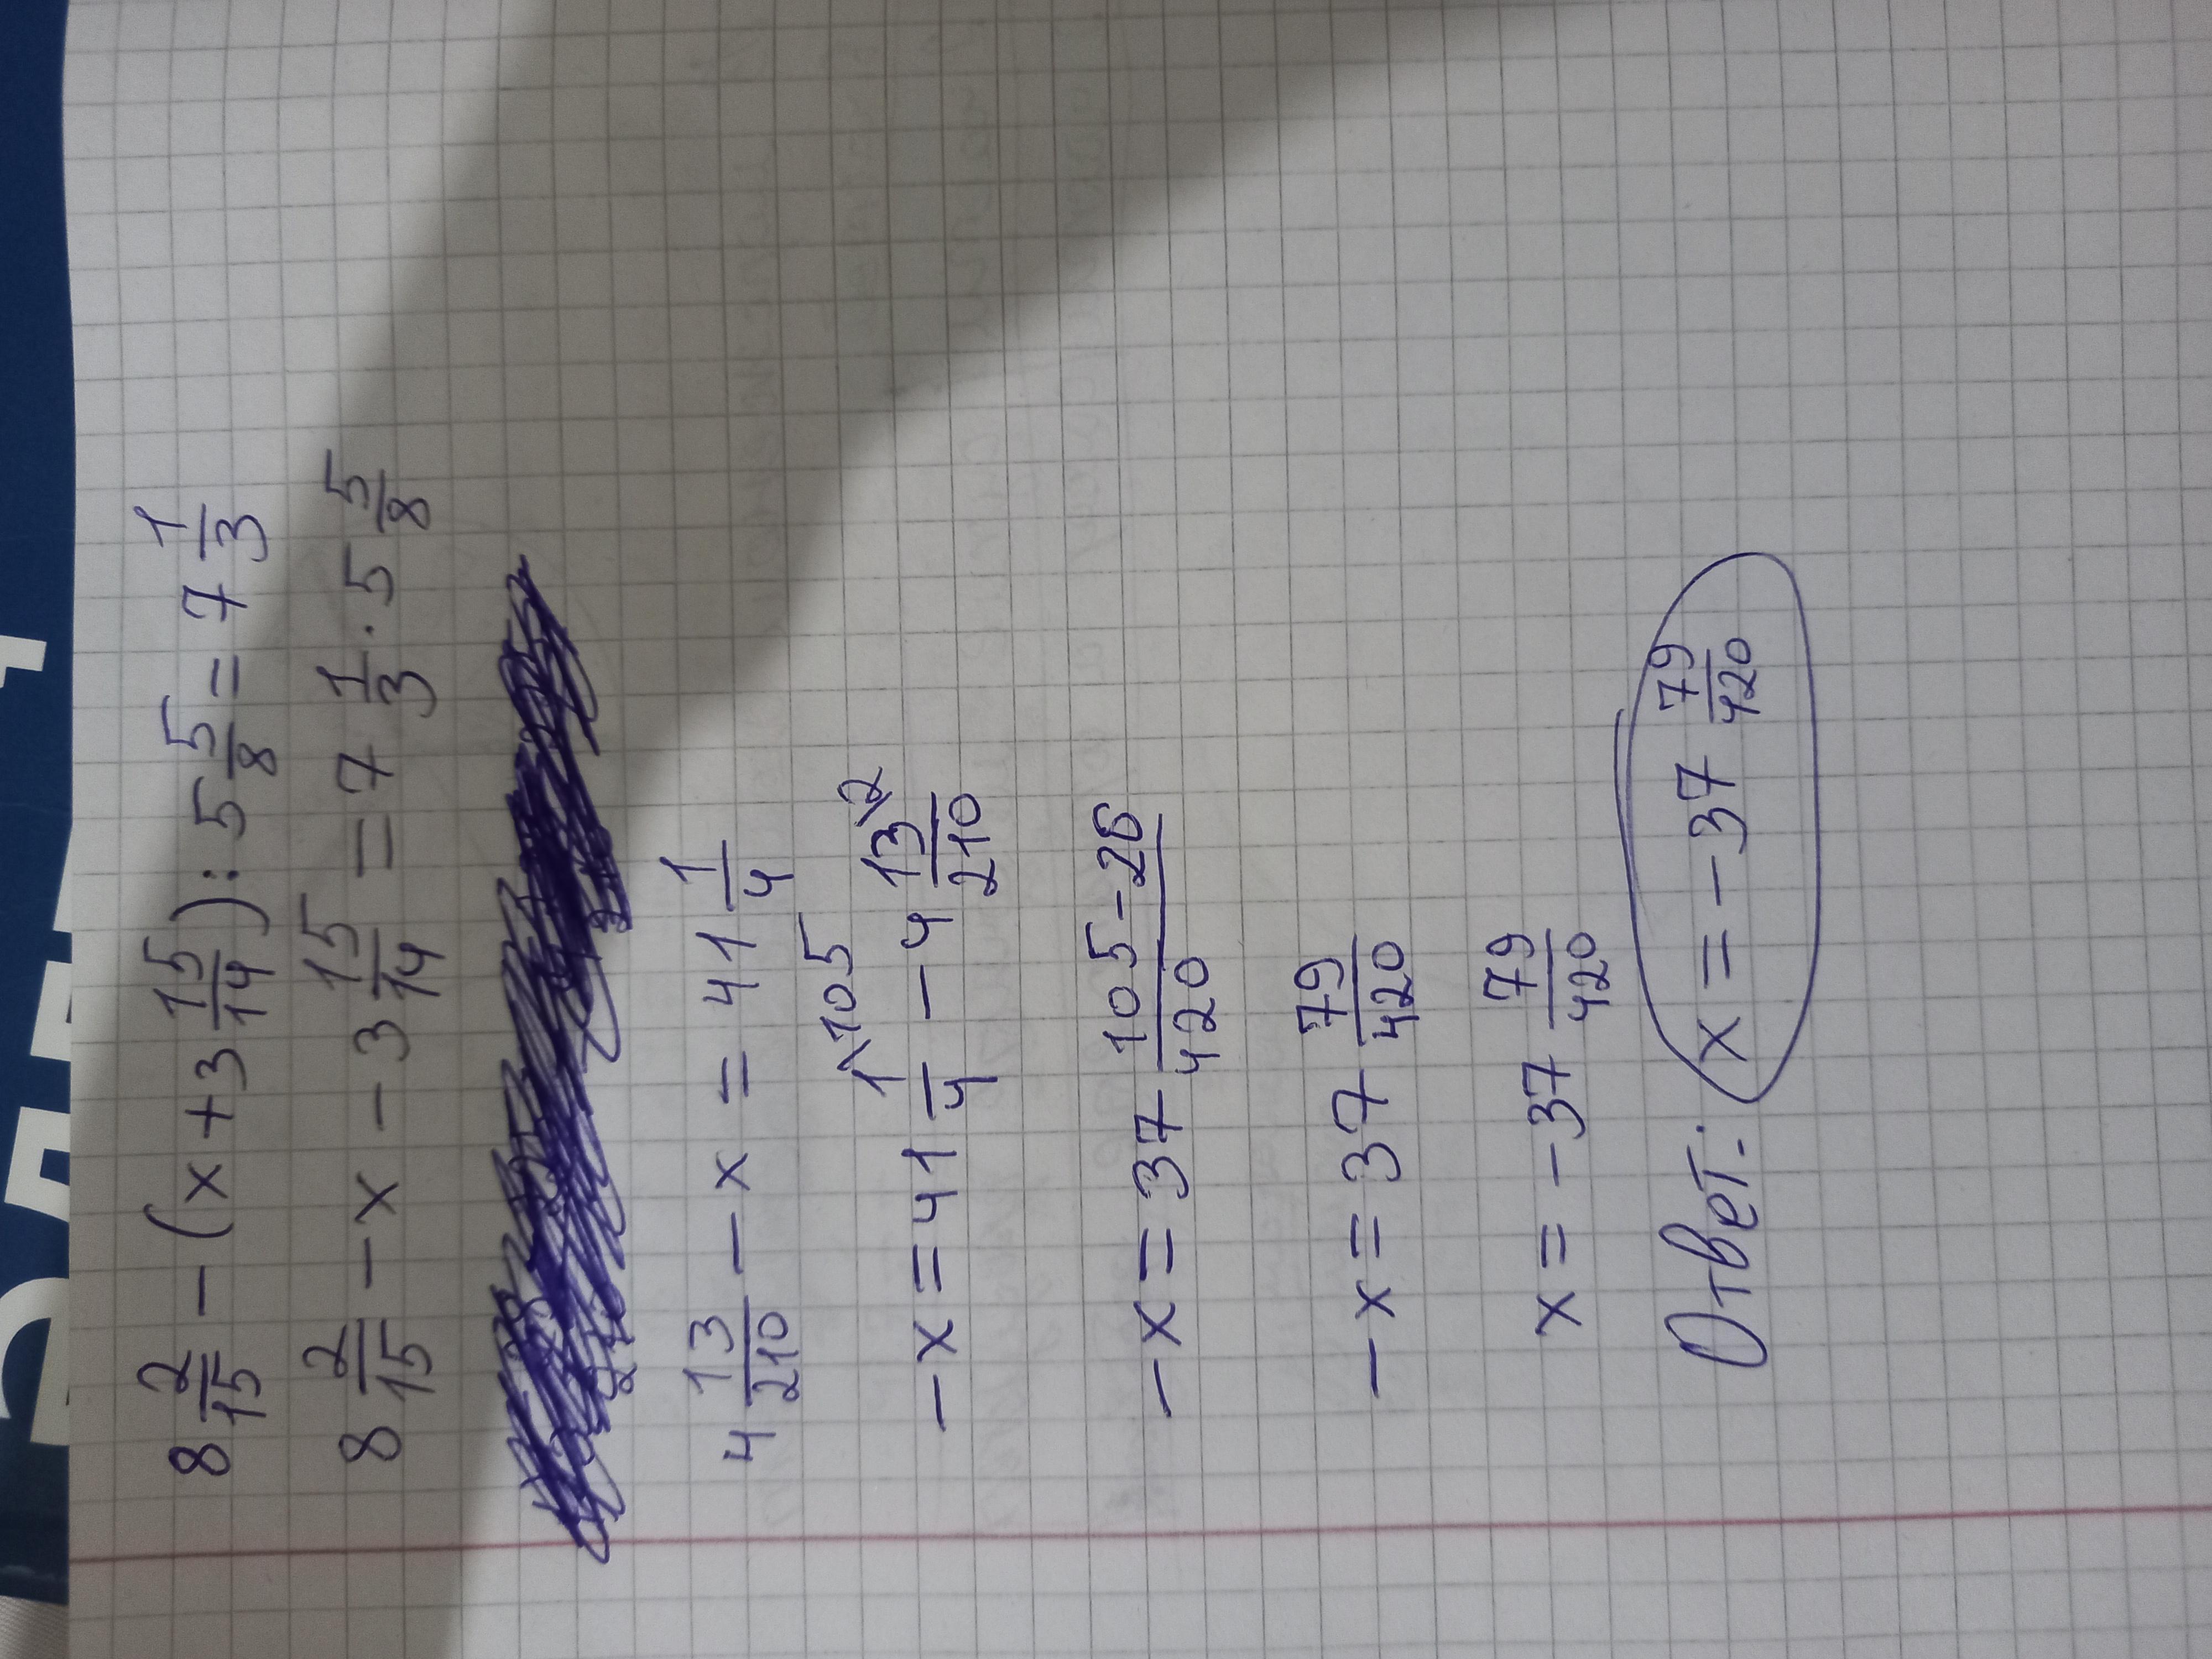 8 2/15 - (x + 3 15/14) : 5 5/8 = 7 1/3
8 2/15 - x - 3 15/14 = 7 1/3 · 5 5/8
4 13/210 - x = 41 1/4
-x = 41 1\105/4 - 4 13\2/210
-x = 37 105-26/420
-x = 37 79/420
x = -37 79/420
Ответ: x = -37 79/420